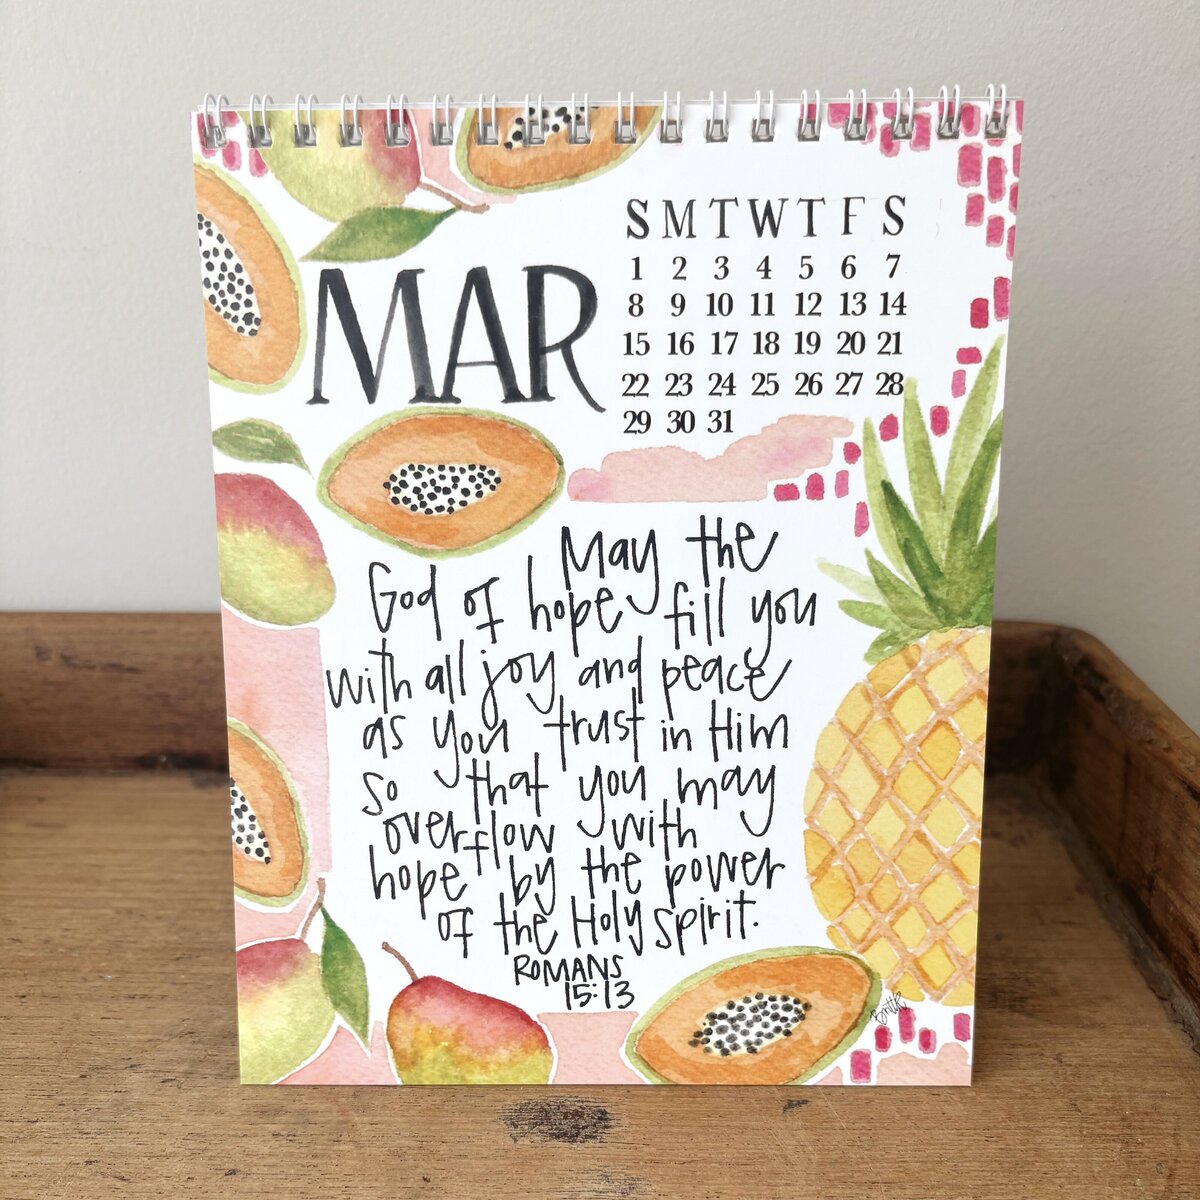 MAR
S M T W T F S
1 2 3 4 5 6 7
8 9 10 11 12 13 14
15 16 17 18 19 20 21
22 23 24 25 26 27 28
29 30 31
May the
God of hope fill you
with all joy and peace
as you trust in Him
so that you may
overflow with
hope by the power
of the Holy Spirit.
ROMANS
15:13